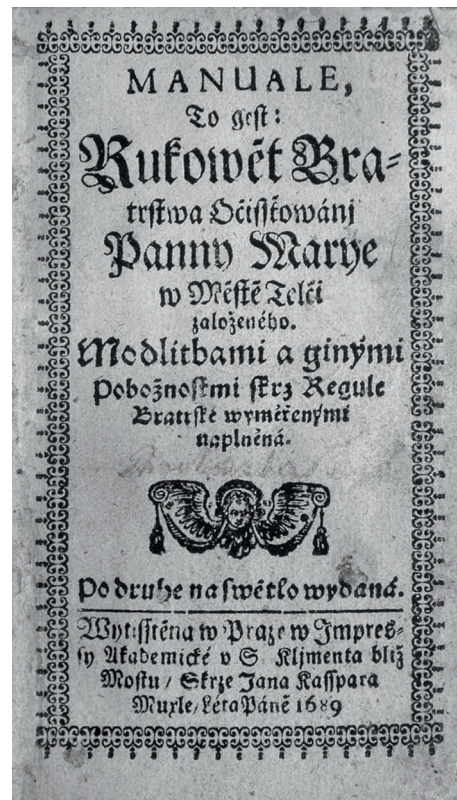 MANUALE,
To gest:
Rukowět Bra=
trstwa Očisstowánj
Panny Marye
w Městě Telči
založeného.
Modlitbami a ginými
Pobožnostmi skrz Regule
Bratrské wyměřenými
naplněná.
Po druhe na swětlo wydaná.
Wytisstěna w Praze w Impres=
sy Akademické v S Kljmenta bljž
Mostu / Skrze Jana Kasspara
Muxle / Léta Páně 1689